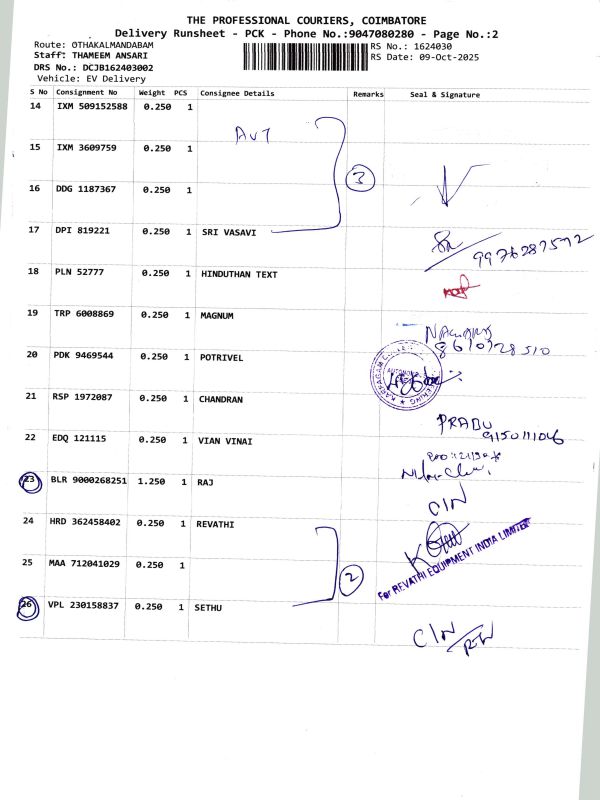 THE PROFESSIONAL COURIERS, COIMBATORE
Delivery Runsheet - PCK - Phone No.:9047080280 - Page No.:2
Route: OTHAKALMANDABAM
RS No.: 1624030
Staff: THAMEEM ANSARI
RS Date: 09-Oct-2025
DRS No.: DCJB162403002
Vehicle: EV Delivery
S No Consignment No Weight PCS Consignee Details Remarks Seal & Signature
14 IXM 509152588 0.250 1
AVT
15 IXM 3609759 0.250 1
3
16 DDG 1187367 0.250 1
17 DPI 819221 0.250 1 SRI VASAVI
9976287572
18 PLN 52777 0.250 1 HINDUTHAN TEXT
19 TRP 6008869 0.250 1 MAGNUM
8610728510
20 PDK 9469544 0.250 1 POTRIVEL
21 RSP 1972087 0.250 1 CHANDRAN
PRABU
9150111046
22 EDQ 121115 0.250 1 VIAN VINAI
23 BLR 9000268251 1.250 1 RAJ
C/N
24 HRD 362458402 0.250 1 REVATHI
For REVATHI EQUIPMENT INDIA LIMITED
25 MAA 712041029 0.250 1
2
26 VPL 230158837 0.250 1 SETHU
C/N